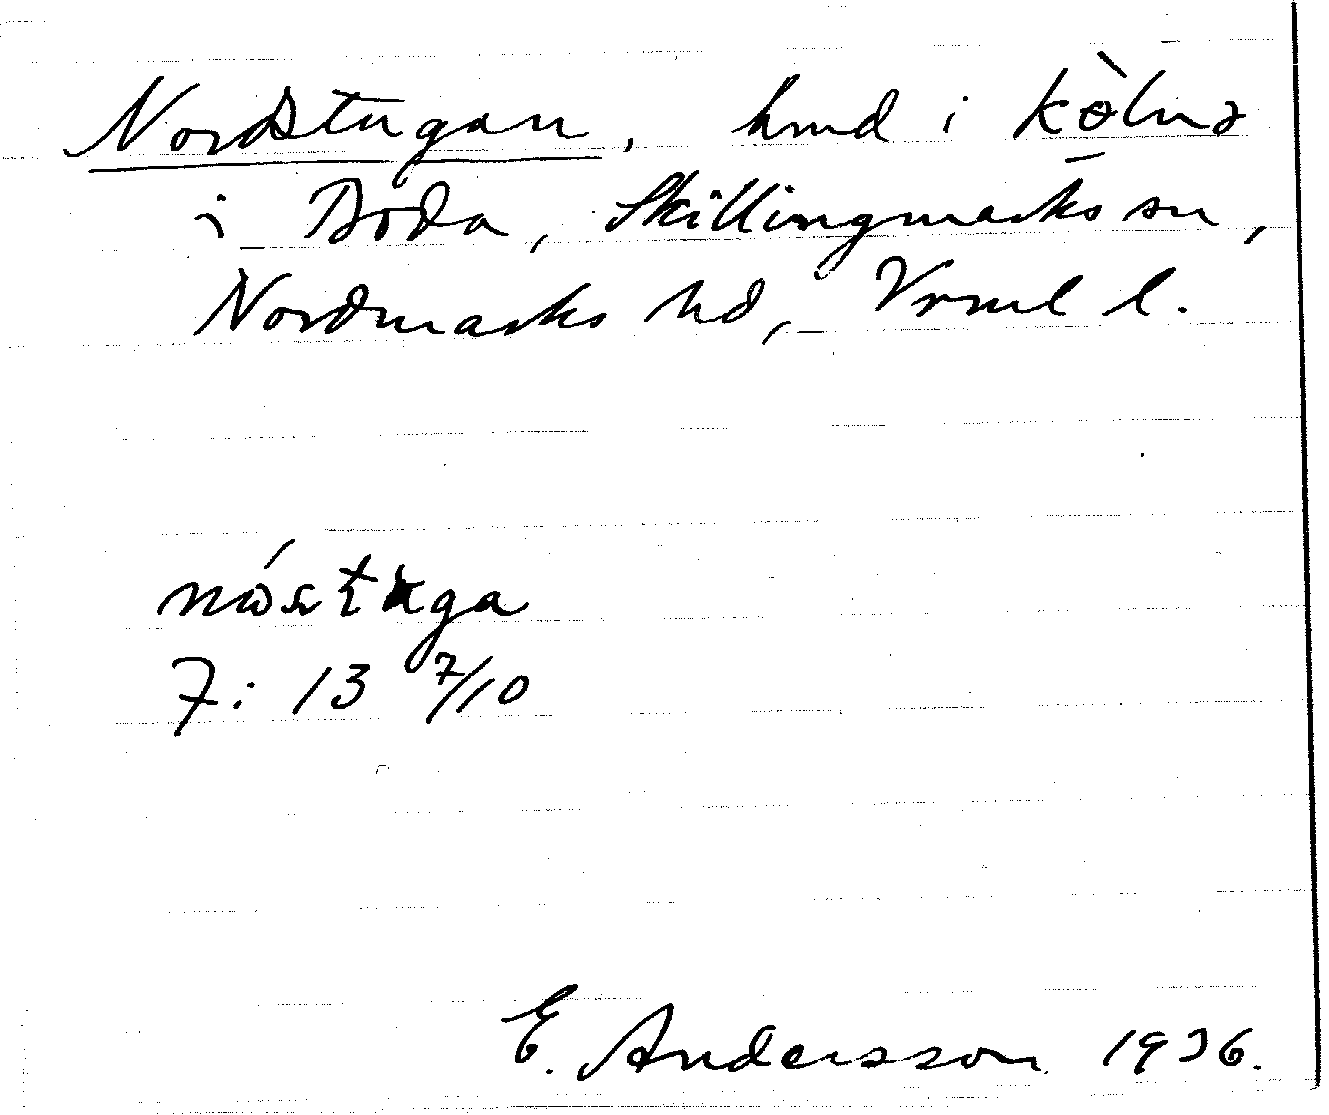 Nordstugan, hmd i kòlnə
i Boda, Skillingmarks sn,
Nordmarks hd, Vrml l.
nɷ́ʂtʉga
7: 13 7/10
E. Andersson 1936.